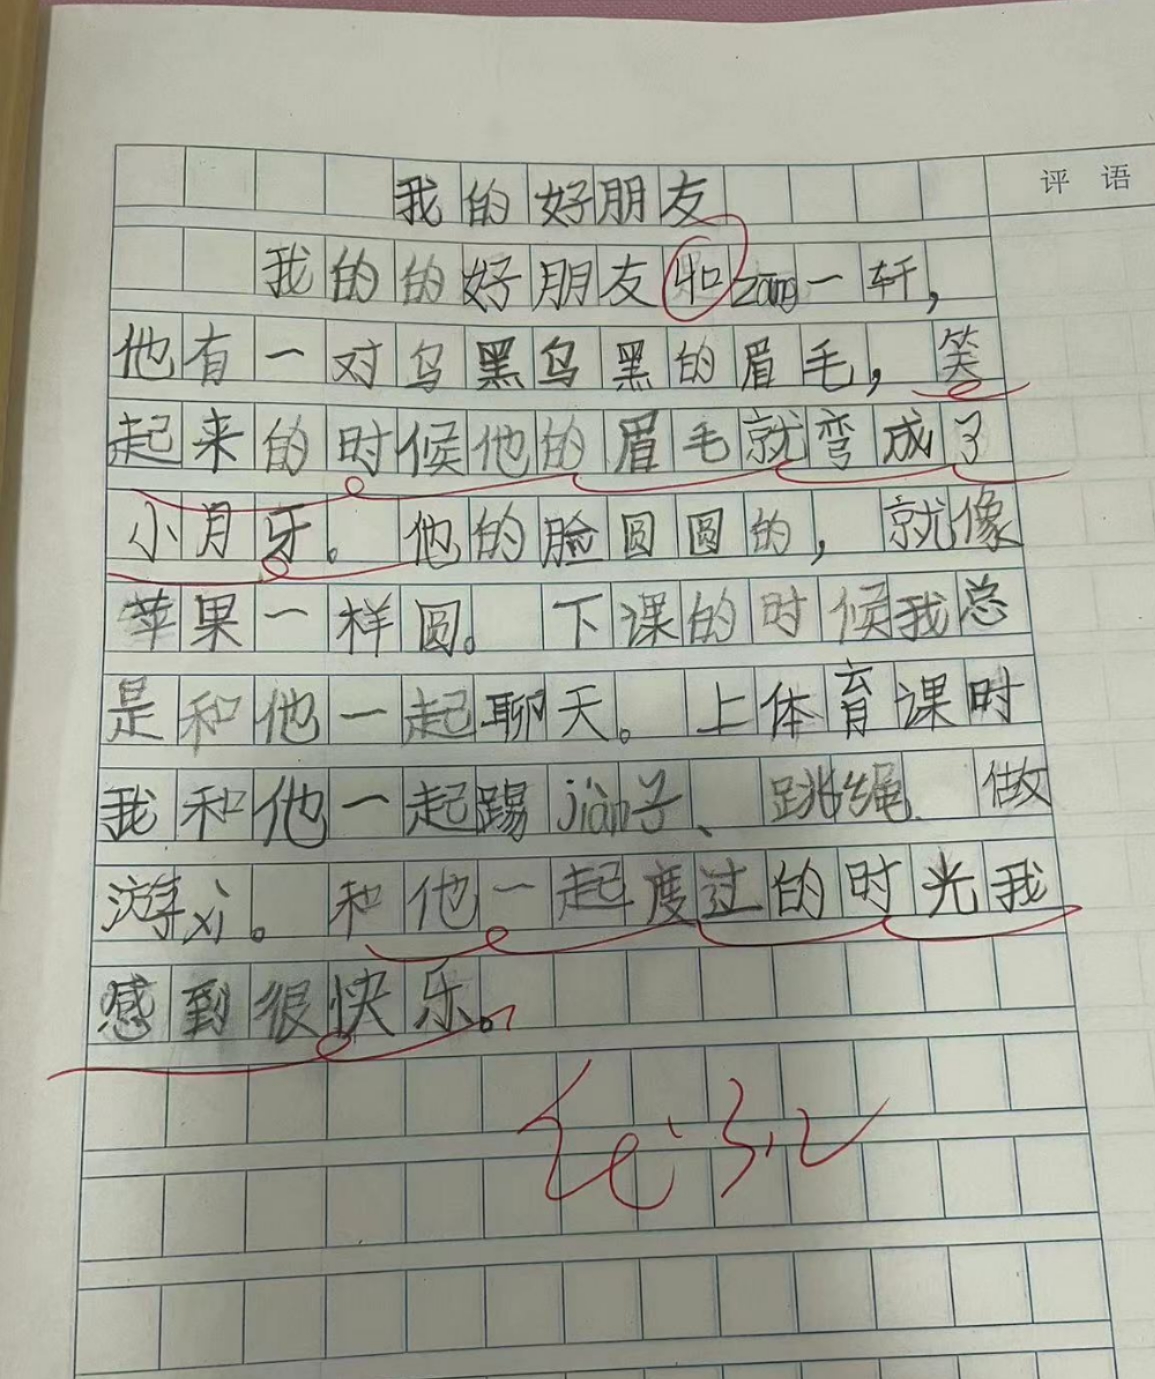 评 语
我的好朋友
我的的好朋友和zāng一轩，
他有一对乌黑乌黑的眉毛，笑
起来的时候他的眉毛就弯成了
小月牙。他的脸圆圆的，就像
苹果一样圆。下课的时候我总
是和他一起聊天。上体育课时
我和他一起踢jiàn子、跳绳、做
游xì。和他一起度过的时光我
感到很快乐。